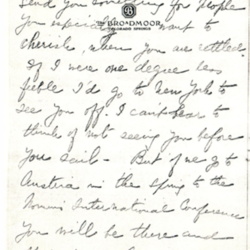 send you something for people
THE BROADMOOR
COLORADO SPRINGS
you expect want to
cherish, when you are settled.
If I were one degree less
feeble I'd go to New York to
see you off. I can't bear to
think of not seeing you before
you sail - But if we go to
Austria in the Spring to the
International Conference
you will be there and